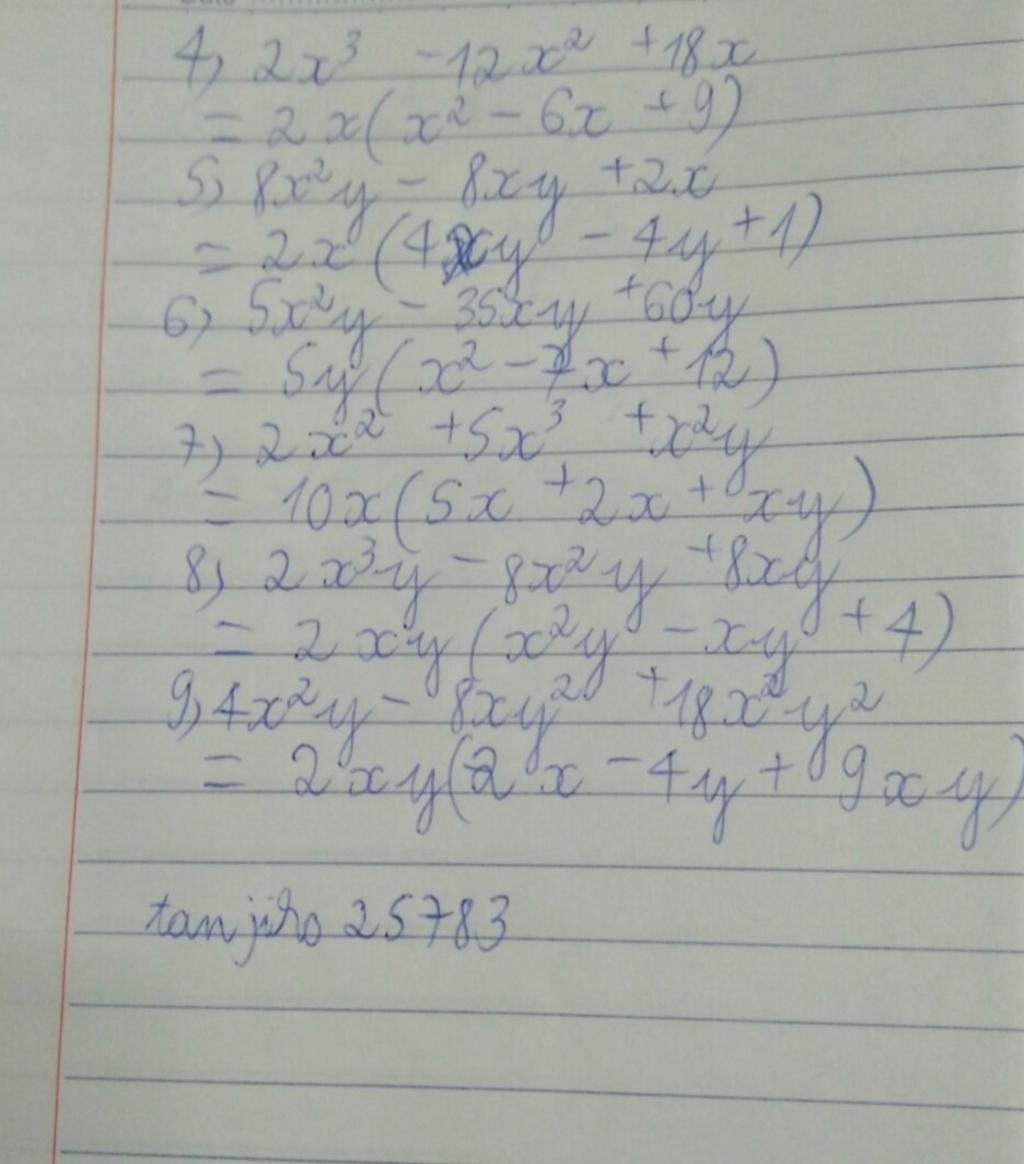 4) 2x³ - 12x² + 18x
= 2x(x² - 6x + 9)
5) 8x²y - 8xy + 2x
= 2x(4xy - 4y + 1)
6) 5x²y - 35xy + 60y
= 5y(x² - 7x + 12)
7) 2x² + 5x³ + x²y
= 10x(5x + 2x + xy)
8) 2x³y - 8x²y + 8xy
= 2xy(x²y - xy + 4)
9) 4x²y - 8xy² + 18x²y²
= 2xy(2x - 4y + 9xy)
tanjiro 25783